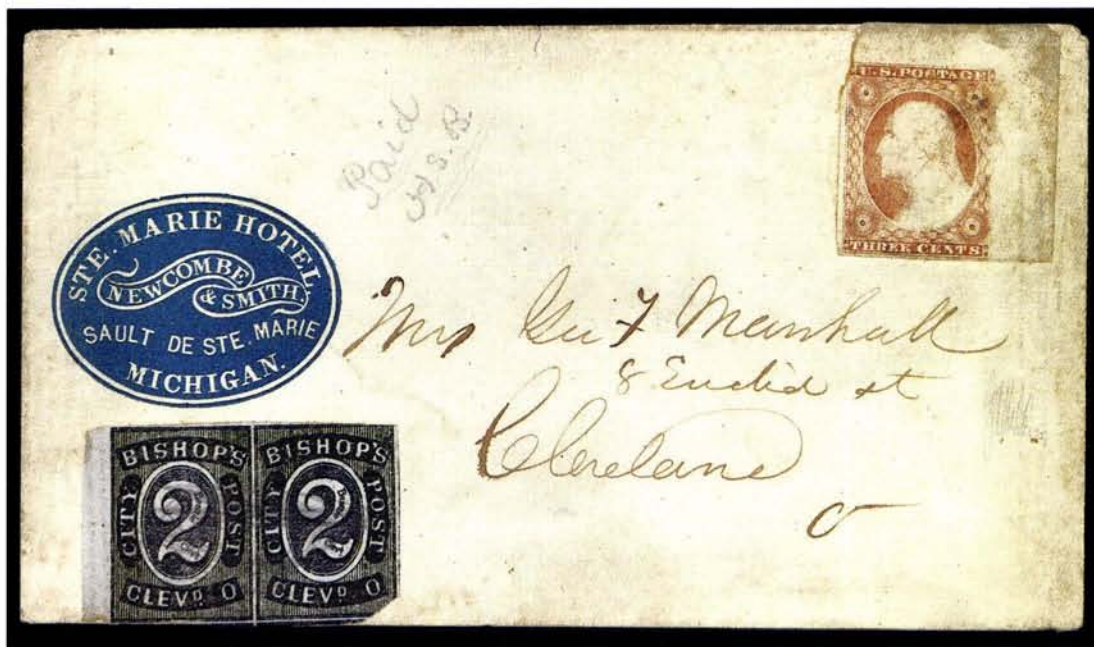 Paid
W.S.B.
U.S. POSTAGE
THREE CENTS
STE. MARIE HOTEL
NEWCOMBE
& SMITH.
SAULT DE STE. MARIE
MICHIGAN.
Mrs Geo F Marshall
8 Euclid st
Cleveland
O
BISHOP'S
CITY 2 POST
CLEVD. O
BISHOP'S
CITY 2 POST
CLEVD. O